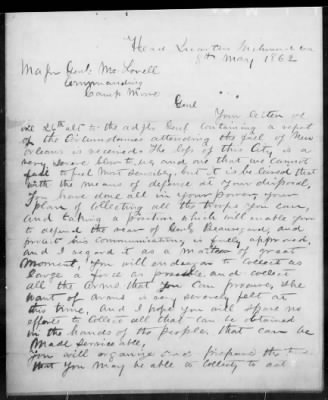 Head Quarters Richmond Va
8th May 1862
Major Genl M. Lovell
Commanding
Camp Moore
Genl
Your letter of
26th ult to the adjt Genl containing a report
of the circumstances attending the fall of New
Orleans is received. The loss of this City, is a
very severe blow to us, and one that we cannot
fail to feel most sensibly, but it is believed that
with the means of defence at your disposal,
have done all in your power, your
plan of collecting all the troops you can,
and taking a position which will enable you
to defend the rear of Genl Beauregard, and
protect his communications, is fully approved,
and I regard it as a matter of great
Moment, You will endeavor to collect as
large a force as possible, and collect
all the arms that you can procure, The
want of arms is very severely felt at
this time, and I hope you will spare no
efforts to collect all that can be obtained
in the hands of the people, that can be
made serviceable,
You will organize and prepare the
that you may be able to collect, to act